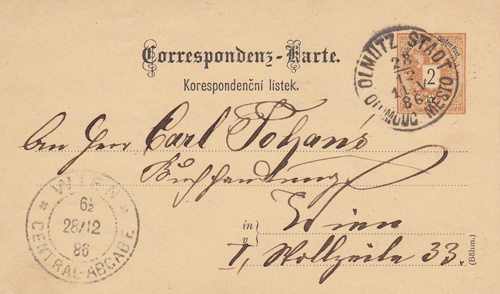 Correspondenz-Karte.
Korespondenční lístek.
OLMÜTZ STADT
28
12
11
86
OLOMOUC MĚSTO
2
An Herr Carl Johans
Buchhandlung
in
v
Wien
I, Wollzeile 33.
(Böhm.)
WIEN
6½
28/12
86
CENTRAL-ABGABE